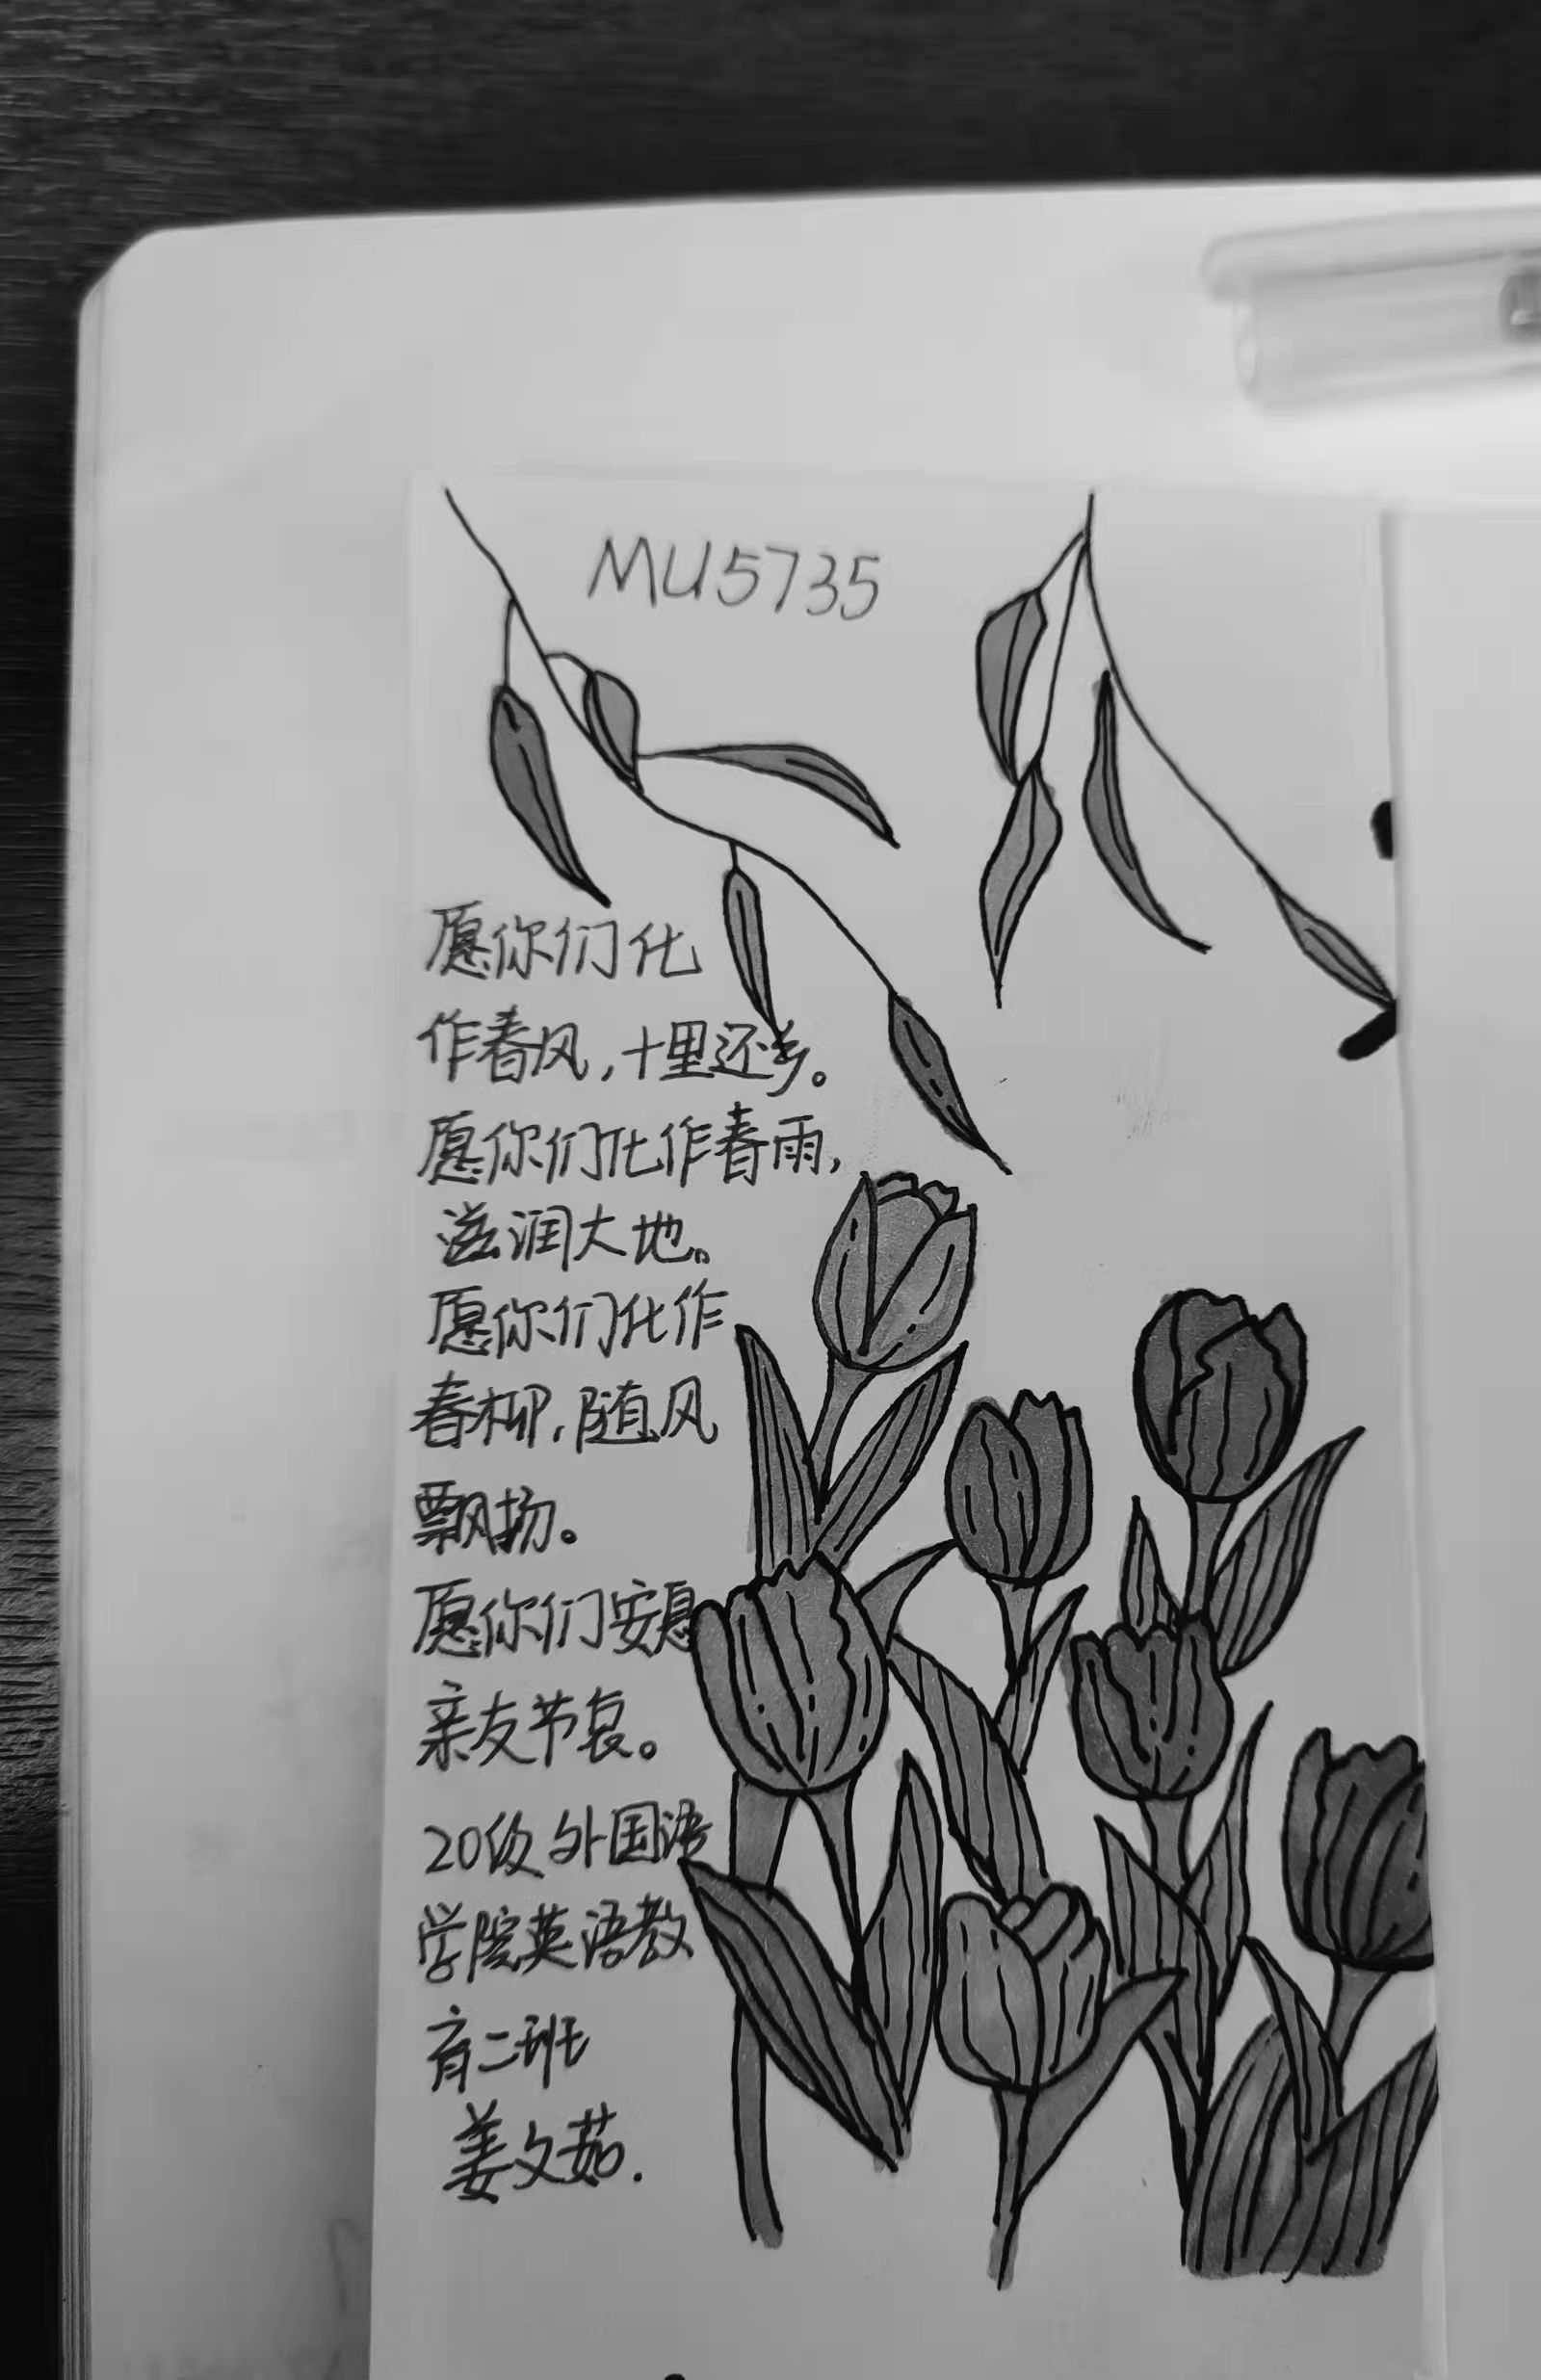 MU5735
愿你们化
作春风,十里还乡。
愿你们化作春雨,
滋润大地。
愿你们化作
春柳,随风
飘扬。
愿你们安息
亲友节哀。
20级外国语
学院英语教
育二班
姜文茹.